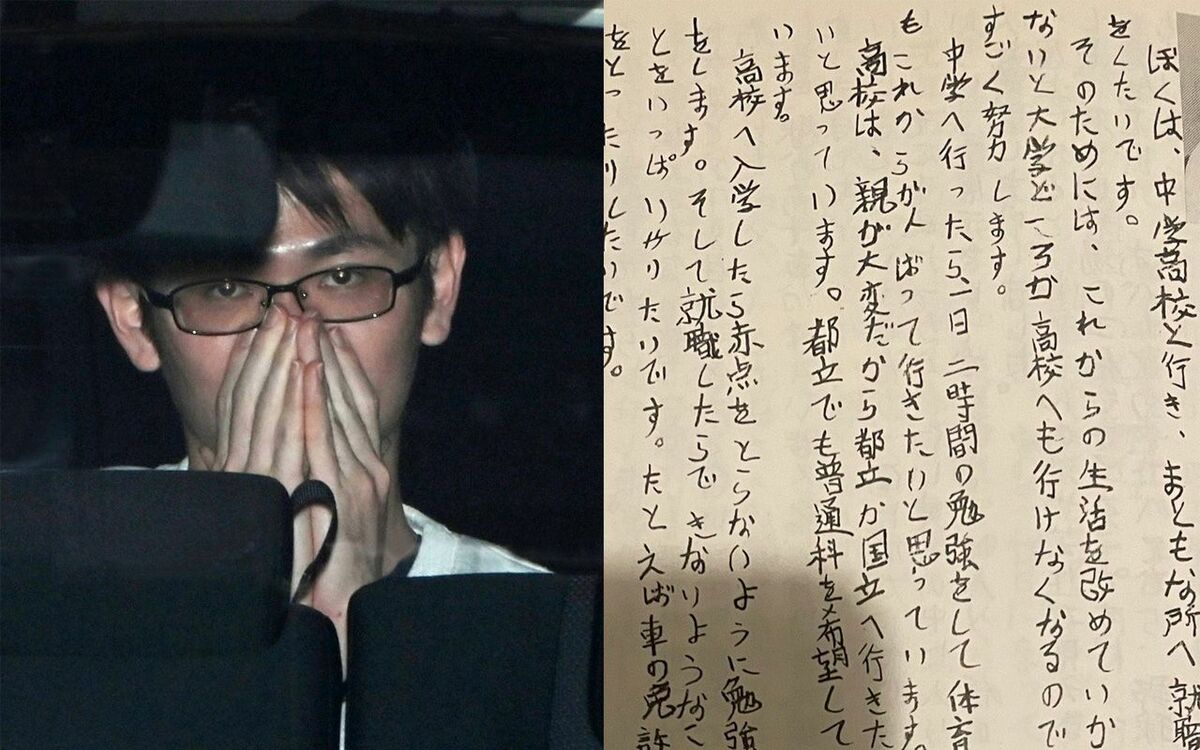 ぼくは、中学高校と行き、まともな所へ就職
をくたいです。
そのためには、これからの生活を改めていか
ないと大学どころか高校へも行けなくなるので
すごく努力します。
中学へ行ったら、一日二時間の勉強をして体育
もこれからがんばって行きたいと思っています。
高校は、親が大変だから都立か国立へ行きた
いと思っています。都立でも普通科を希望して
います。
高校へ入学したら赤点をとらないように勉強
をします。そして就職したらできないようなこ
とをいっぱいやりたいです。たとえば車の免許
をとったりしたいです。